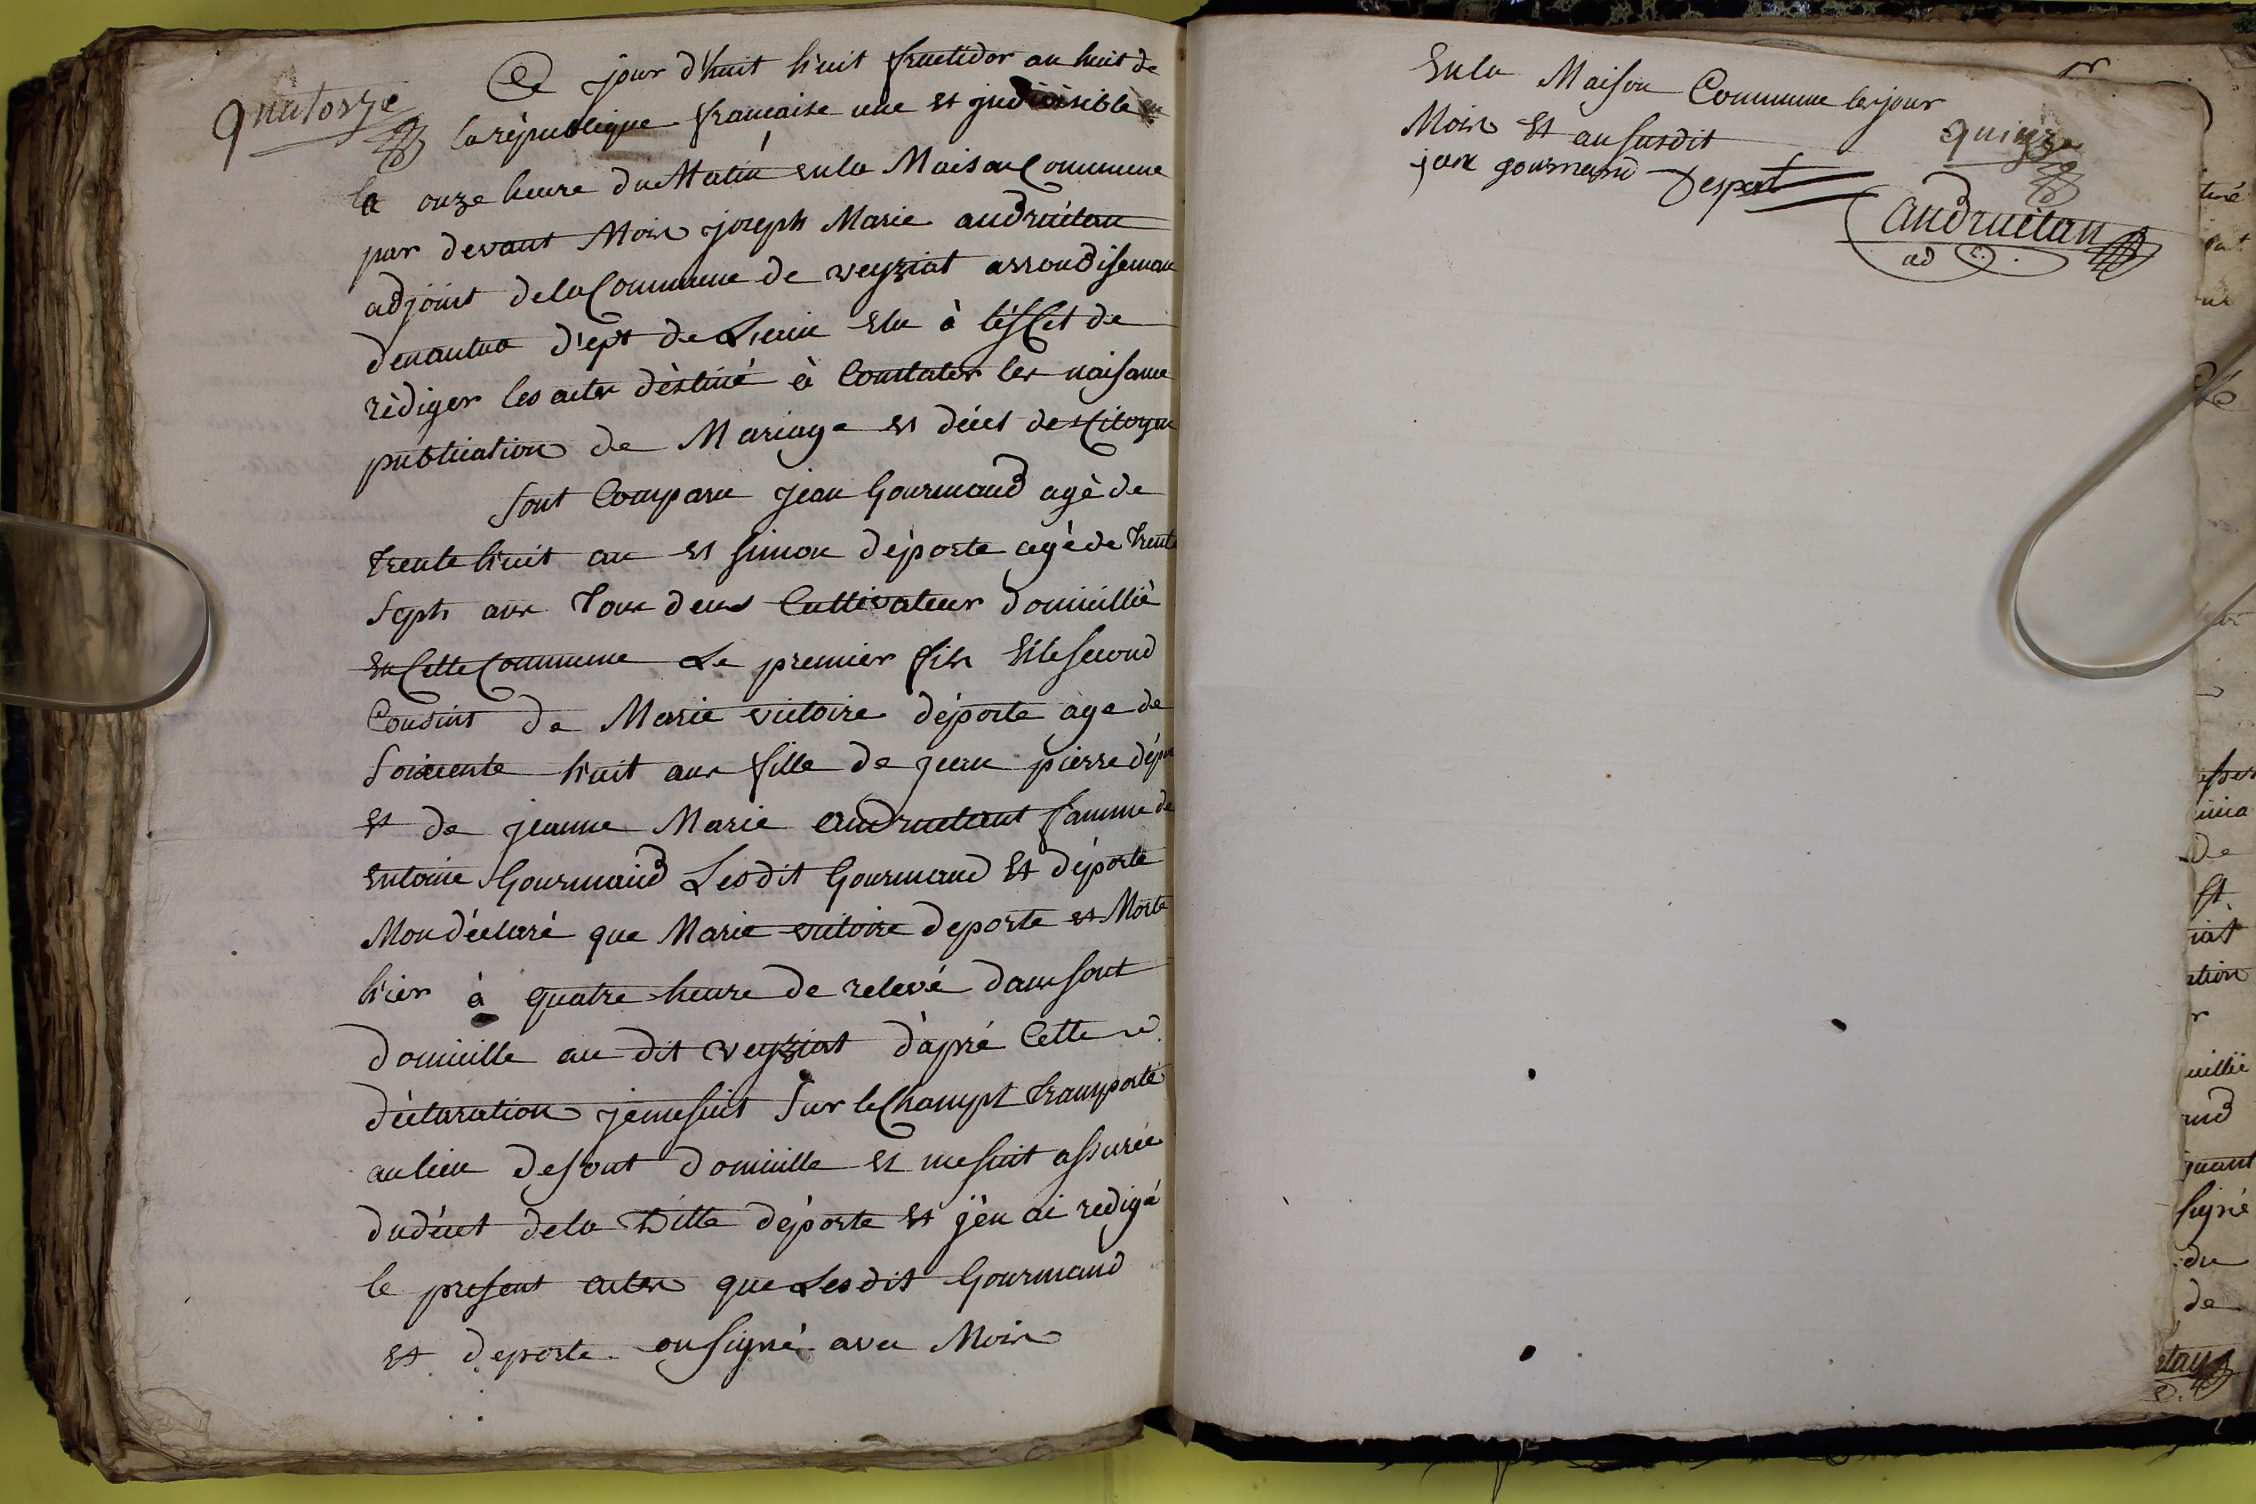 quatorze
Ce jour d'huit h'uit fructidor an huit de
la république francaise une et jndivisible
la onze heure du Matin en la Maison Commune
par devant Mois joseph Marie andruétan
adjoint de la Commune de veyziat arrondiseman
denantua d'ept de Lenin Elu à léffet de
rédiger les actes déstiné à Constater les naisance
publication de Mariage et décet des Citoyen
sont Comparu jean Gourmand agé de
trente h'uit an et simon déporte agé de trente
septs ans tous deus Cultivateur domicillié
en Cette Commune Le premier fils Et le second
Cousint de Marie victoire déporte age de
soixcente h'uit ans fille de jean pierre dépor
et de jeanne Marie andruetant famme de
entoine Gourmand Les dit Gourmand Et déporte
Mon déclaré que Marie victoire deporte et Morte
h'ier à quatre heure de relevé dans sont
domicille au dit veyziat d'apré Cette
déclaration je me suit sur le Champt transporté
au lieu de sont domicille et me suit assurée
du décet de la ditte déporte et j'en ai redigé
le present actes que Les dit Gourmand
et deporte on signé avec Mois
En la Maison Commune les jour
Mois Et an susdit
jean gourmand Desport
quinze
andruétan
ad
tion
uillié
and
quant
signé
du
de